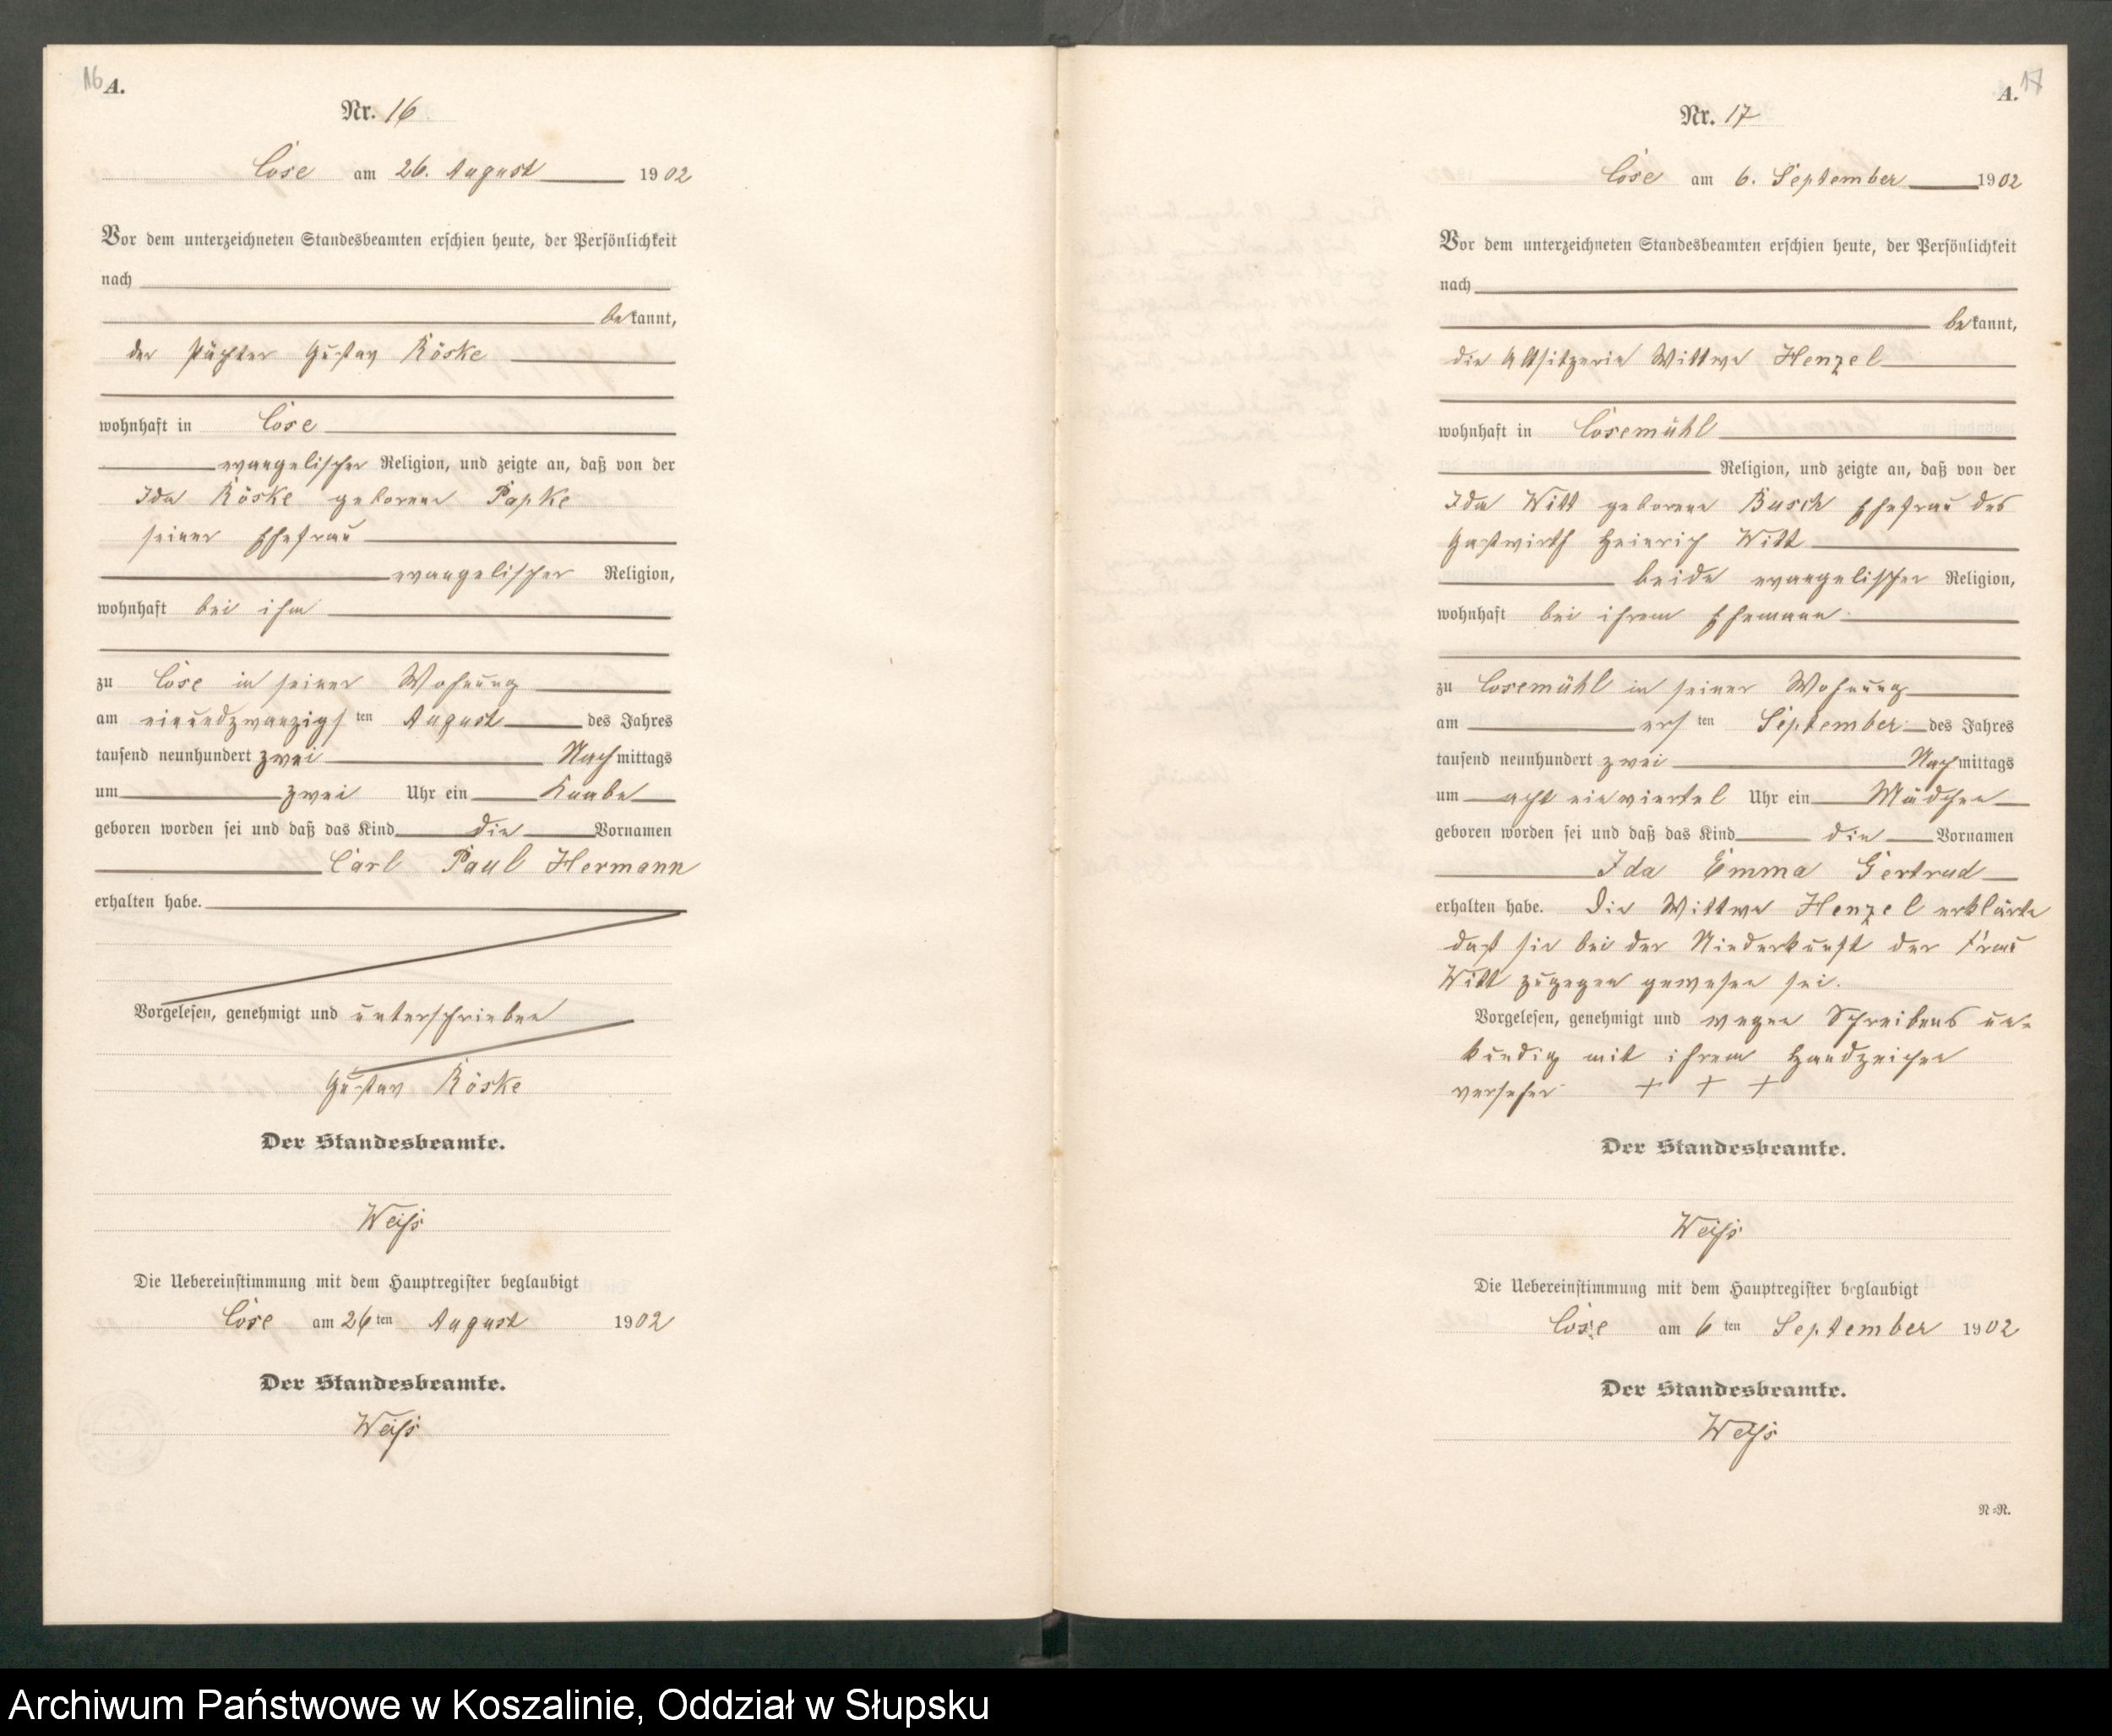 16
A.
Nr. 16
Cose am 26. August 1902
Vor dem unterzeichneten Standesbeamten erschien heute, der Persönlichkeit
nach
bekannt,
der Pächter Gustav Röske
wohnhaft in Cose
evangelischer Religion, und zeigte an, daß von der
Ida Röske geborene Papke
seiner Ehefrau
evangelischer Religion,
wohnhaft bei ihm
zu Cose in seiner Wohnung
am einundzwanzigsten August des Jahres
tausend neunhundert zwei Nachmittags
um zwei Uhr ein Knabe
geboren worden sei und daß das Kind die Vornamen
Carl Paul Hermann
erhalten habe.
Vorgelesen, genehmigt und unterschrieben
Gustav Röske
Der Standesbeamte.
Weiß
Die Uebereinstimmung mit dem Hauptregister beglaubigt
Cose am 26ten August 1902
Der Standesbeamte.
Weiß
17
A.
Nr. 17
Cose am 6. September 1902
Vor dem unterzeichneten Standesbeamten erschien heute, der Persönlichkeit
nach
bekannt,
die Altsitzerin Wittwe Henzel
wohnhaft in Cosemühl
Religion, und zeigte an, daß von der
Ida Witt geborene Busch Ehefrau des
Gastwirth Heinrich Witt
beide evangelischer Religion,
wohnhaft bei ihrem Ehemann
zu Cosemühl in seiner Wohnung
am ersten September des Jahres
tausend neunhundert zwei Nachmittags
um acht einviertel Uhr ein Mädchen
geboren worden sei und daß das Kind die Vornamen
Ida Emma Gertrud
erhalten habe. Die Wittwe Henzel erklärte
daß sie bei der Niederkunft der Frau
Witt zugegen gewesen sei.
Vorgelesen, genehmigt und wegen Schreibens un-
kundig mit ihrem Handzeichen
versehen + + +
Der Standesbeamte.
Weiß
Die Uebereinstimmung mit dem Hauptregister beglaubigt
Cose am 6ten September 1902
Der Standesbeamte.
Weiß
N=R.
Archiwum Państwowe w Koszalinie, Oddział w Słupsku